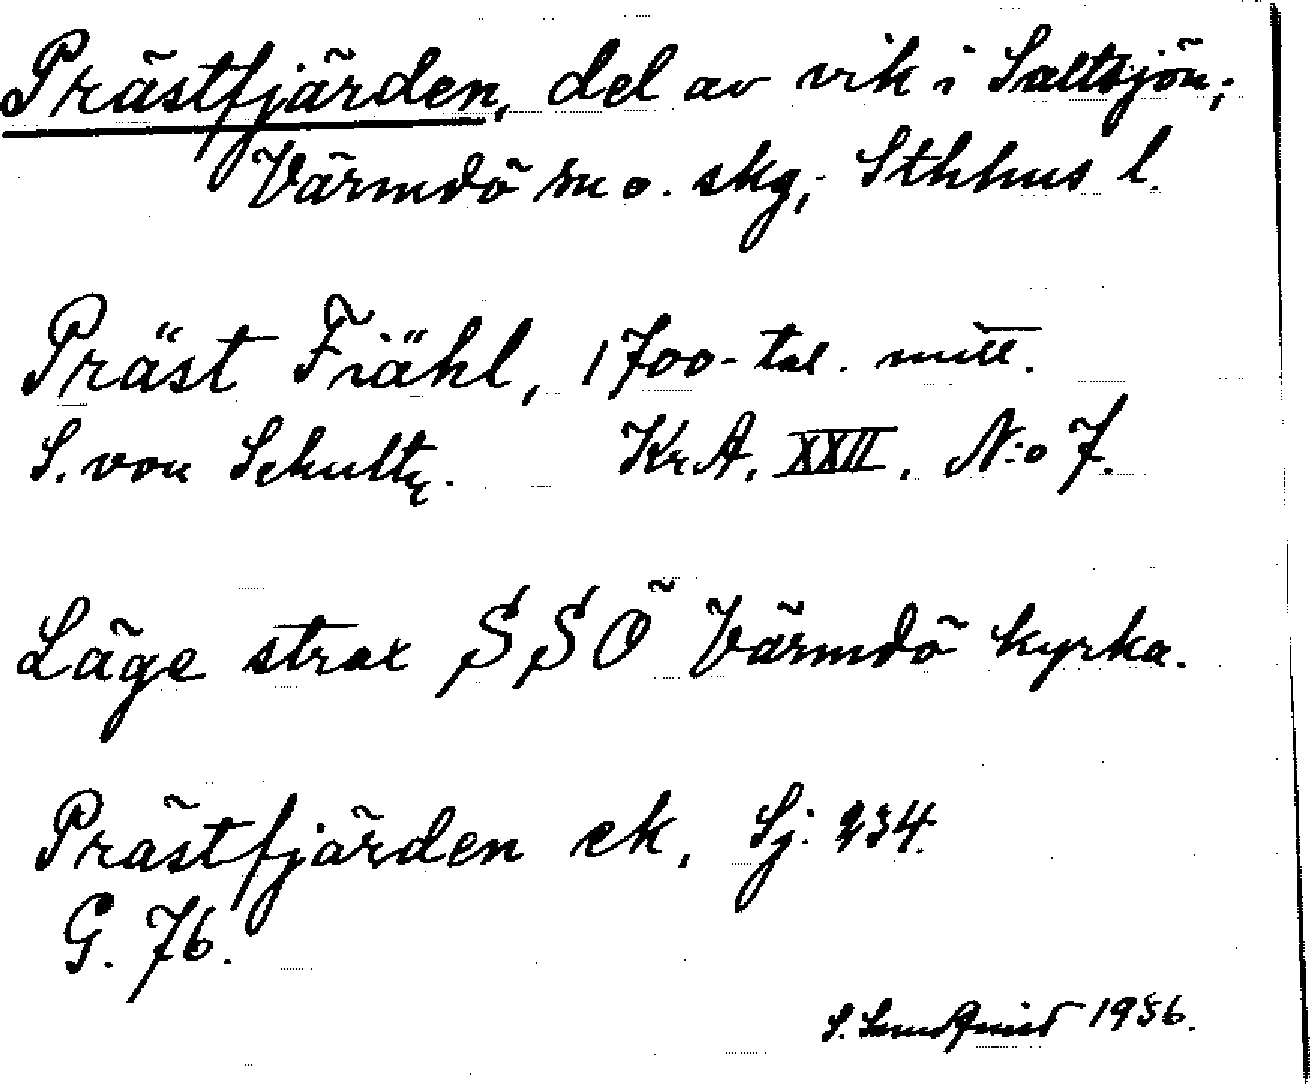 Prästfjärden, del av vik i Saltsjön;
Värmdö sn o. skg, Sthlms l.
Präst Fiähl, 1700-tal. mitt.
S. von Schultz. KrA. XXII. N:o 7.
Läge strax SSÖ Värmdö kyrka.
Prästfjärden ek, Sj: 234.
G. 76.
S. 1936.